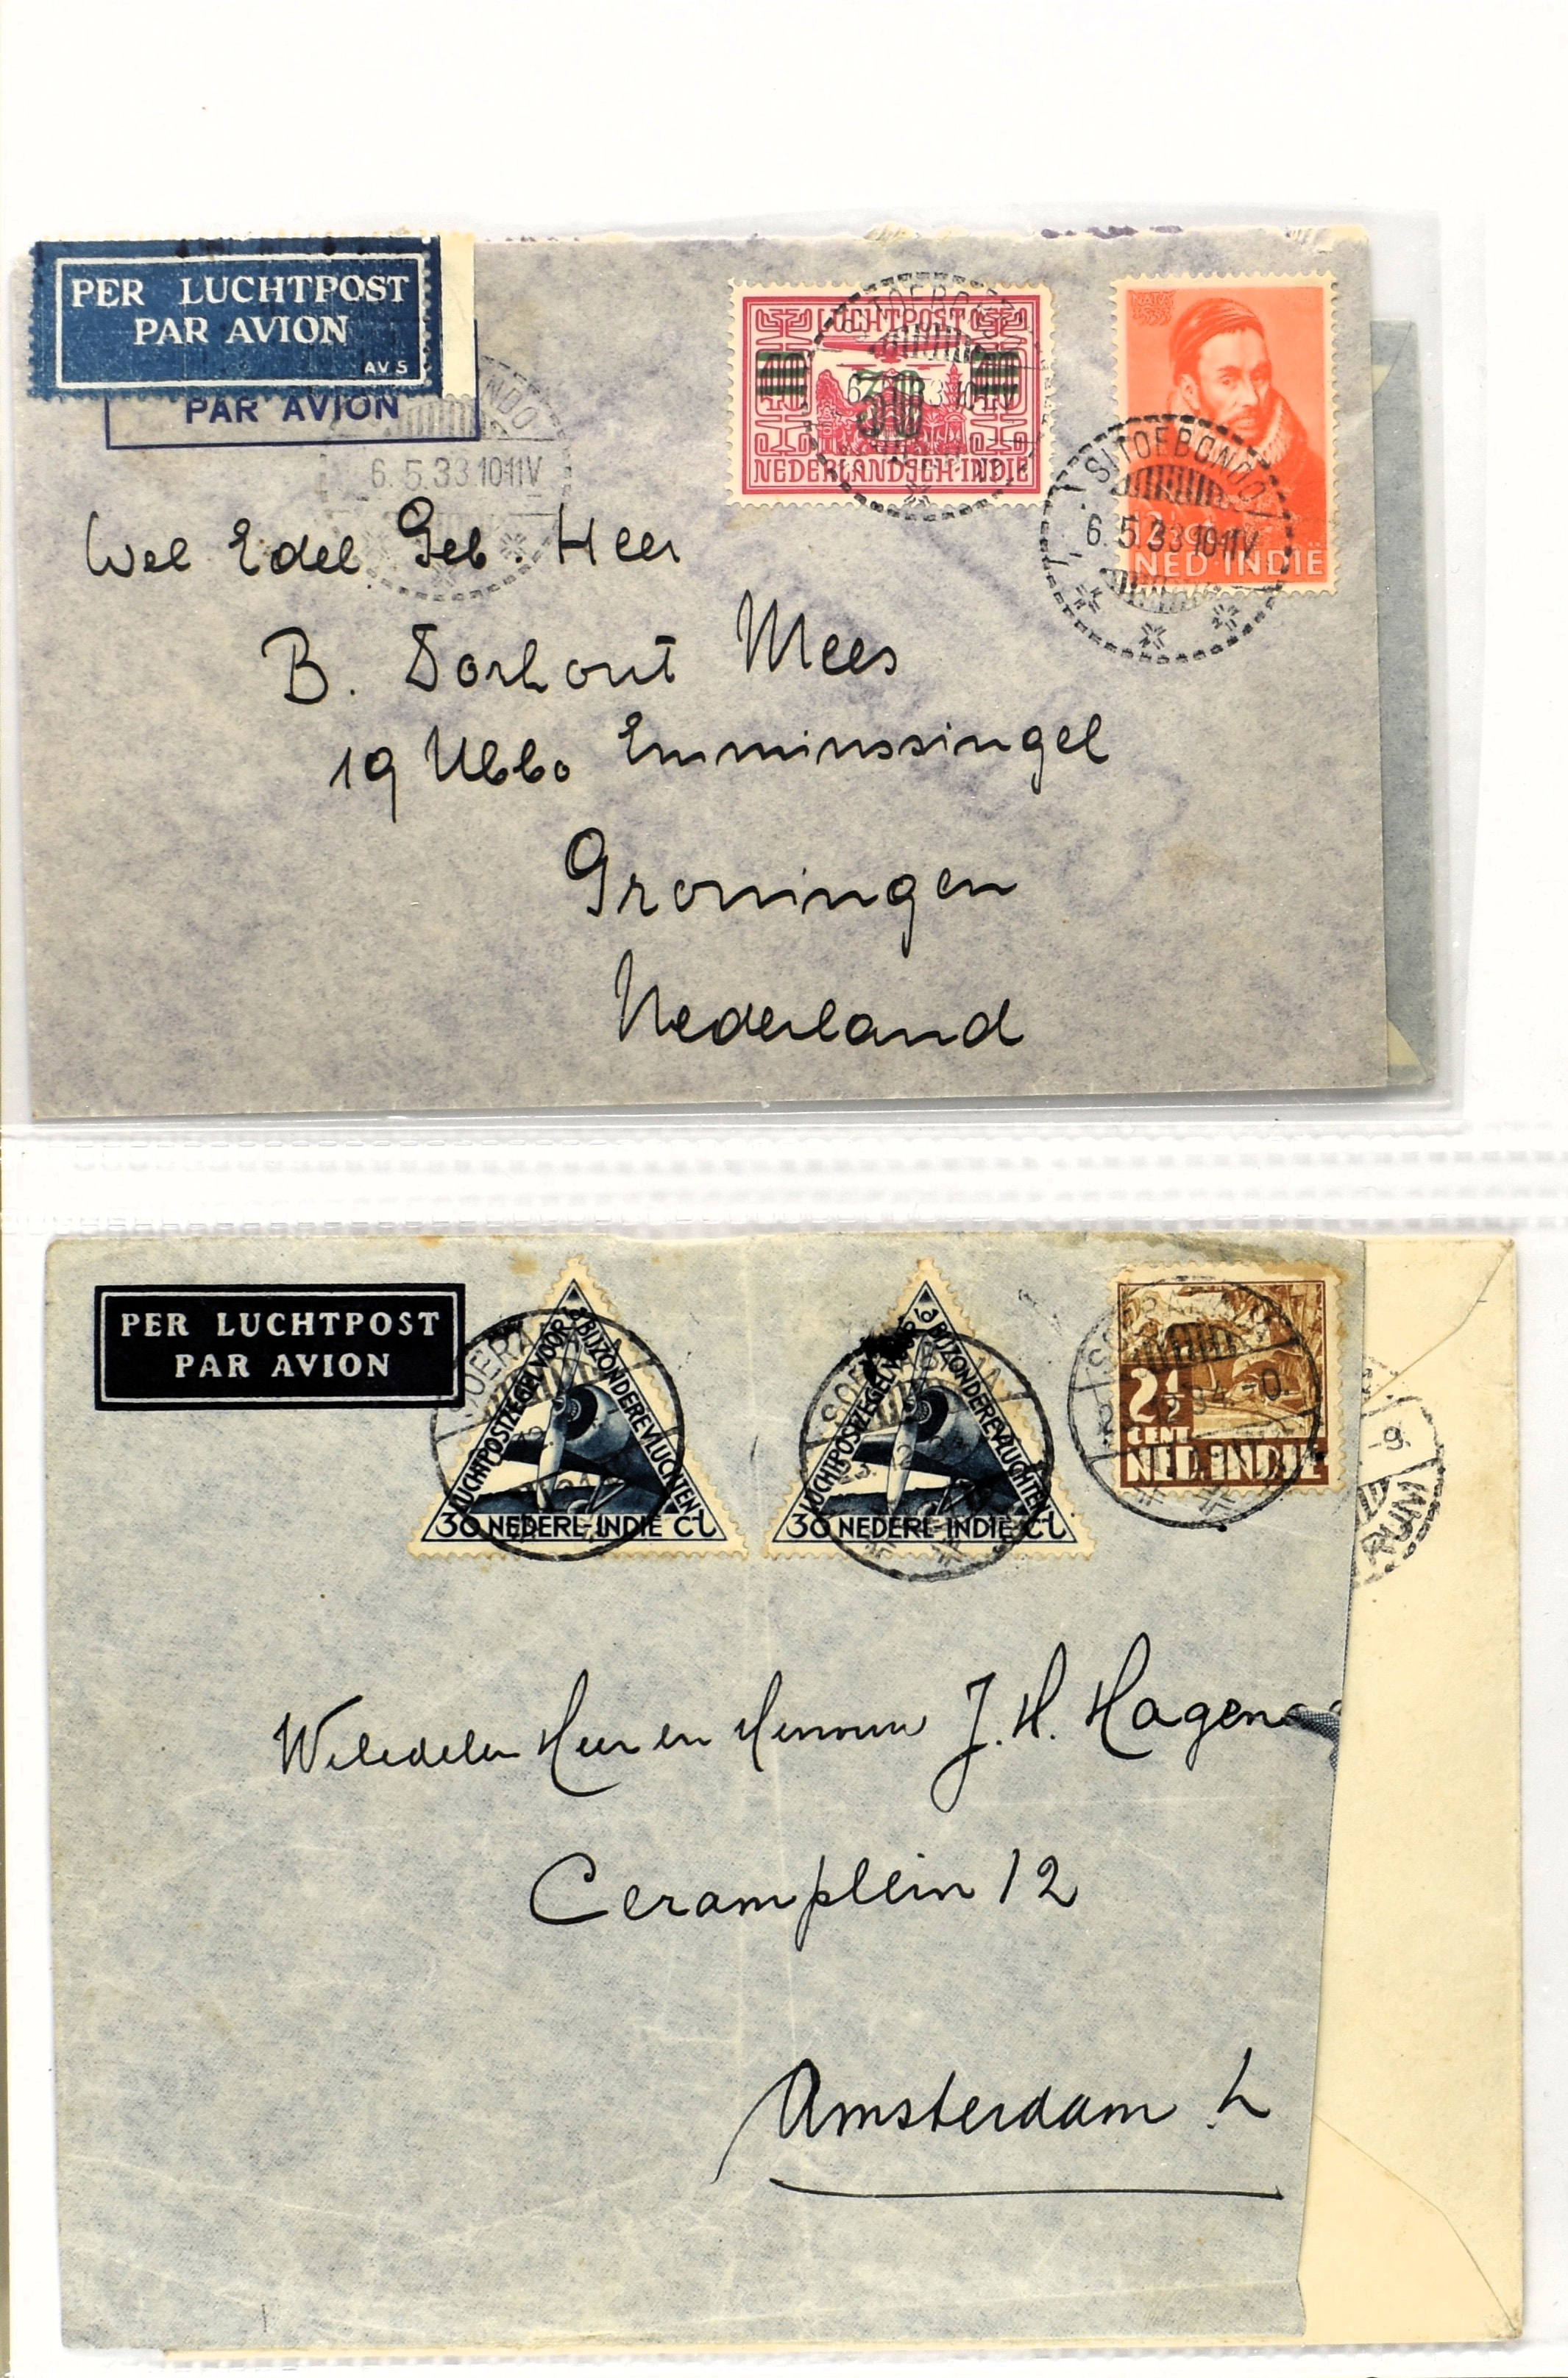 PER LUCHTPOST
PAR AVION
AVS
PAR AVION
NDO
6.5.33 10-11V
LUCHTPOST
30
NEDERLANDSCH-INDIE
SITOEBONDO
NED-INDIË
SITOEBONDO
6.5.33 10-11V
Wel Edel Geb. Heer
B. Dorhout Mees
19 Ubbo Emminssingel
Groningen
Nederland
PER LUCHTPOST
PAR AVION
LUCHTPOSTZEGEL VOOR BIJZONDERE VLUCHTEN
30 NEDERL-INDIE Ct
LUCHTPOSTZEGEL BIJZONDERE VLUCHTEN
30 NEDERL-INDIE Ct
2½
CENT
NED-INDIE
-9.
RUM
Weledelen Heer en Mevrouw J. H. Hagen
Ceramplein 12
Amsterdam